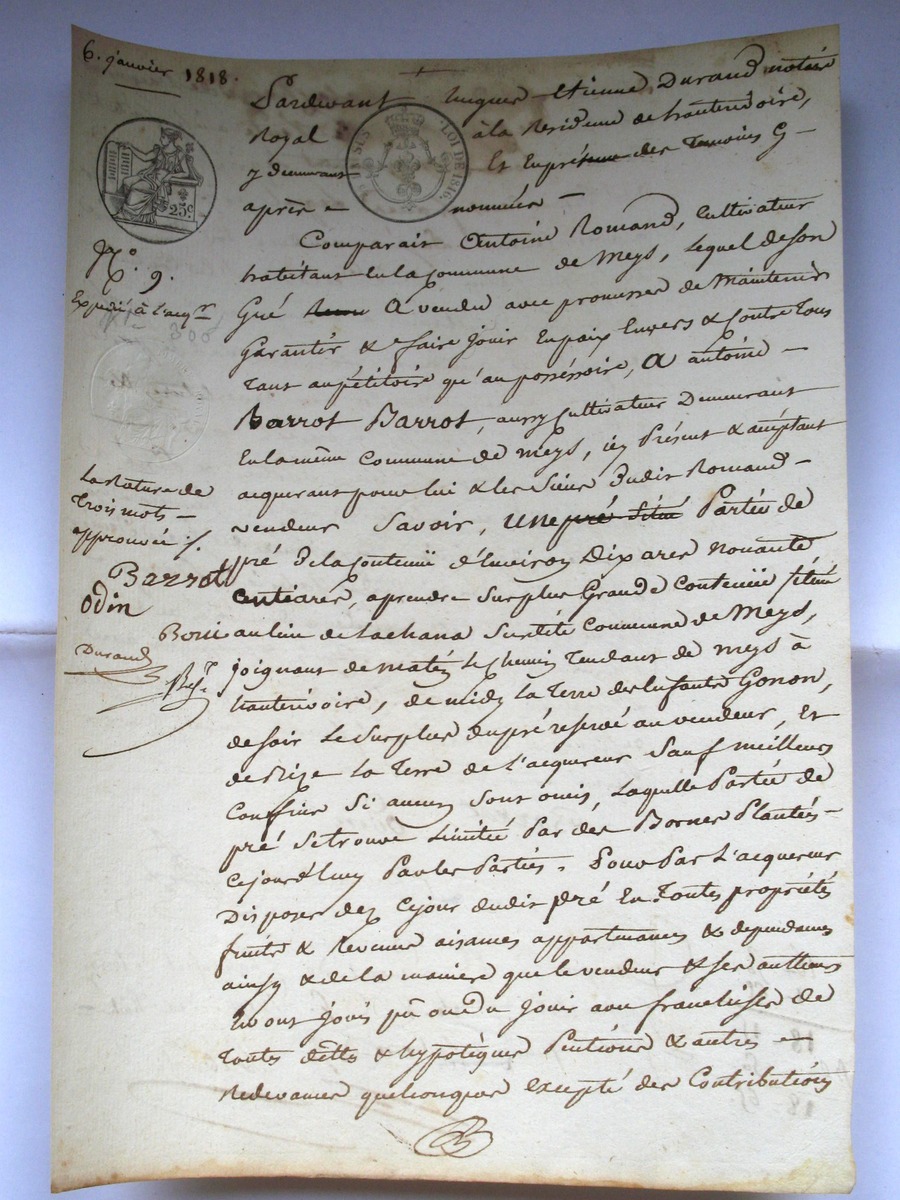 6. janvier 1818.
Pardevant hugues Etienne Durand notaire
Royal à la Residence de hauterivoire,
y demeurant Et En présence des Temoins Cy –
après – nommés –
LOI DE 1816.
25c
Comparait Antoine Romand, Cultivateur
habitant En la Commune de Meys, Lequel de son
Gré A vendu avec promesses de Maintenir
Garantir & faire Jouir En paix Envers & Contre Tous
Tant au pétitoire qu'au posséssoire, A antoine –
Barrot Barrot, aussy Cultivateur Demeurant
En la même Commune de Meys, icy Présent & acceptant
acquerant pour lui & les siens Dudit Romand –
vendeur Savoir, Une pré situé Partie de
pré De la Contenüe d'Environ Dix ares nonante
Centiares, aprendre Sur plus Grande Contenüe situé
au lieu de Lachana Surdite Commune de Meys,
joignant de matin le Chemin Tendant de meys à
hauterivoire, de midy la Terre des Enfants Gonon,
de soir le Surplus du pré reservé au vendeur, Et
de Bize la Terre de l'acquereur Sauf meilleurs
Confins Si aucuns Sont omis, Laquelle Partie de
pré Se trouve Limitée Par des Bornes Plantées –
Cejourd'huy Par les Parties. Pour Par L'acquereur
Disposer dez Cejour dudit pré En Toutes propriétés
fruits & Revenus aisances appartenances & dependances
ainsy & de la maniere que le vendeur & ses autheurs
En ont Jouis pû ou dû Jouir avec franchises de
Toutes dettes & hypotèques Pentions & autres –
Redevances quelconques Excepté des Contributions
No. 9.
Expedié à l'acqr.
La Rature de
Trois mots –
approuvée
Barrot
Odin
Durand